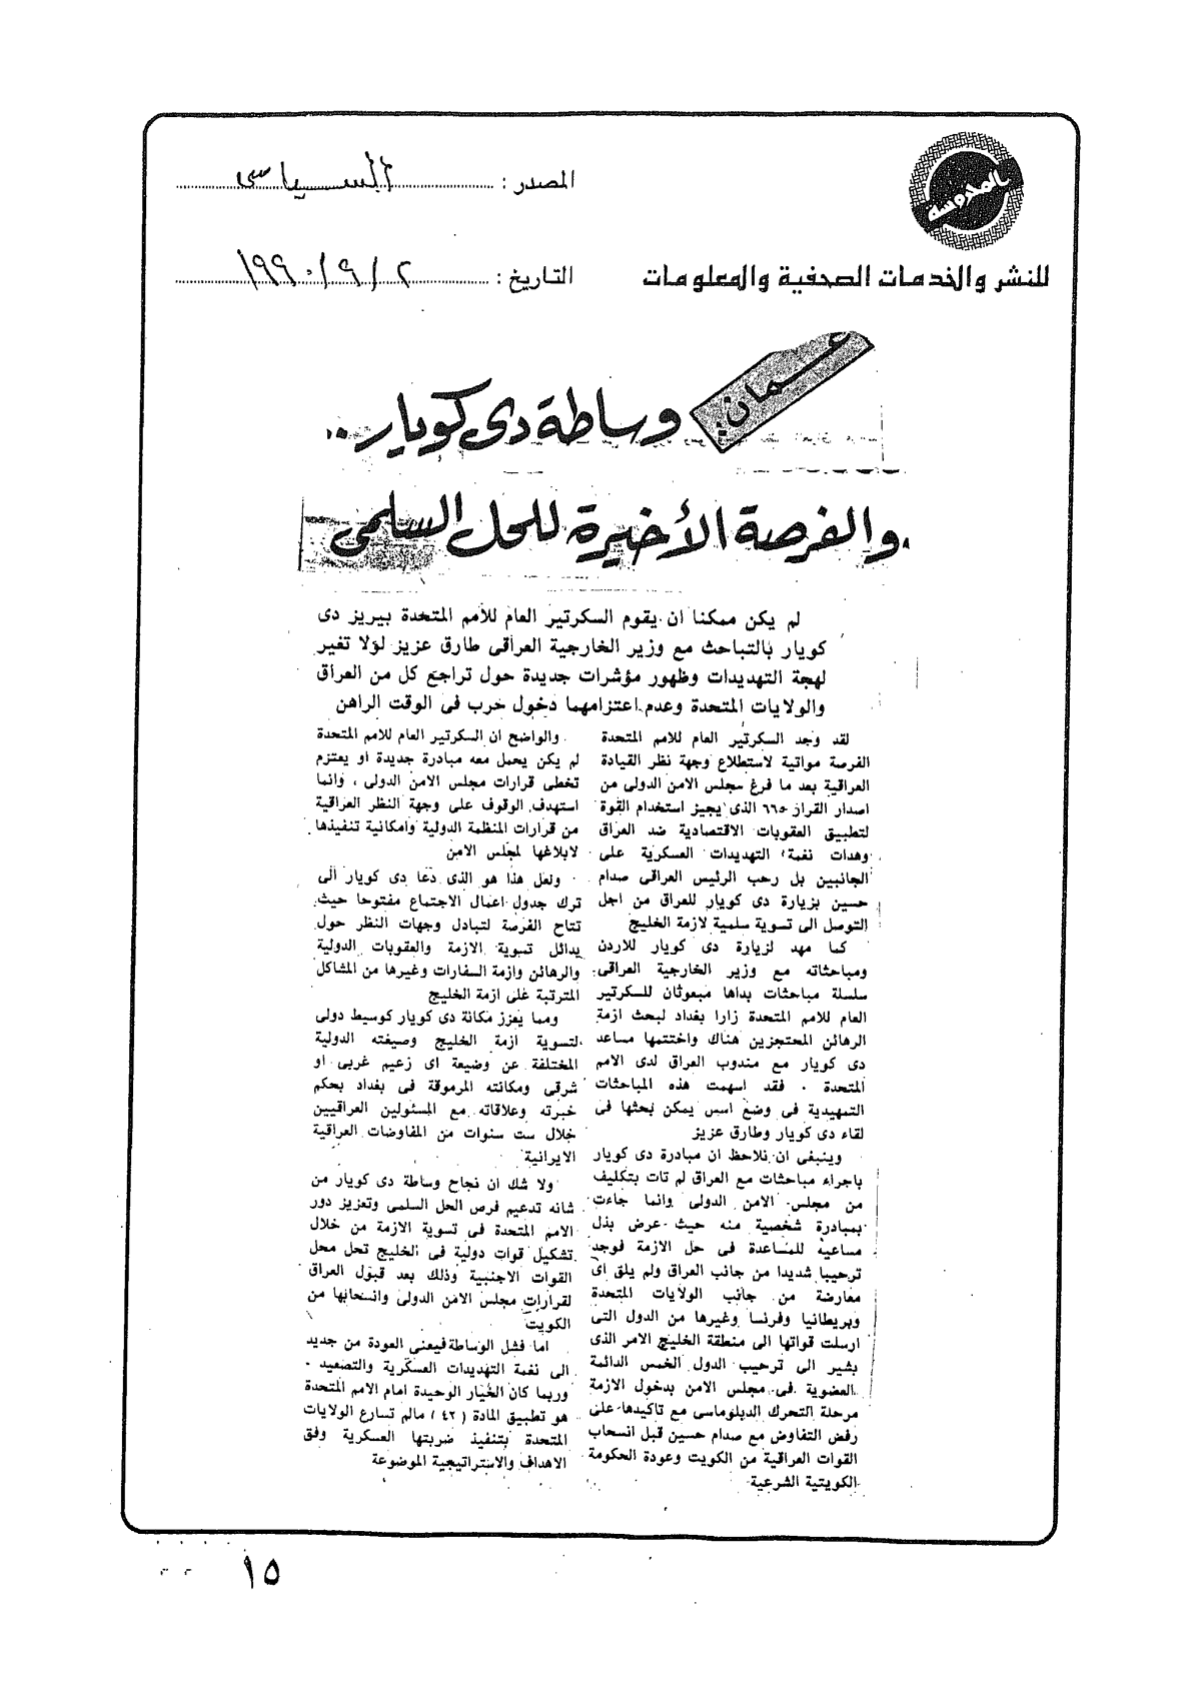 المحروسة
للنشر والخدمات الصحفية والمعلومات
المصدر : السياسى
التاريخ : ٢ / ٩ / ١٩٩٠
عمان :
وساطة دى كويار ..
.. والفرصة الأخيرة للحل السلمى
لم يكن ممكنا ان يقوم السكرتير العام للأمم المتحدة بيريز دى
كويار بالتباحث مع وزير الخارجية العراقى طارق عزيز لولا تغير
لهجة التهديدات وظهور مؤشرات جديدة حول تراجع كل من العراق
والولايات المتحدة وعدم اعتزامهما دخول حرب فى الوقت الراهن
لقد وجد السكرتير العام للامم المتحدة
الفرصة مواتية لاستطلاع وجهة نظر القيادة
العراقية بعد ما فرغ مجلس الامن الدولى من
اصدار القرار ٦٦٥ الذى يجيز استخدام القوة
لتطبيق العقوبات الاقتصادية ضد العراق
وهدات نغمة التهديدات العسكرية على
الجانبين بل رحب الرئيس العراقى صدام
حسين بزيارة دى كويار للعراق من اجل
التوصل الى تسوية سلمية لازمة الخليج
كما مهد لزيارة دى كويار للاردن
ومباحثاته مع وزير الخارجية العراقى
سلسلة مباحثات بداها مبعوثان للسكرتير
العام للامم المتحدة زارا بغداد لبحث ازمة
الرهائن المحتجزين هناك واختتمها مساعد
دى كويار مع مندوب العراق لدى الامم
المتحدة . فقد اسهمت هذه المباحثات
التمهيدية فى وضع اسس يمكن بحثها فى
لقاء دى كويار وطارق عزيز
وينبغى ان نلاحظ ان مبادرة دى كويار
باجراء مباحثات مع العراق لم تات بتكليف
من مجلس الامن الدولى وانما جاءت
بمبادرة شخصية منه حيث عرض بذل
مساعيه للمساعدة فى حل الازمة فوجد
ترحيبا شديدا من جانب العراق ولم يلق اى
معارضة من جانب الولايات المتحدة
وبريطانيا وفرنسا وغيرها من الدول التى
ارسلت قواتها الى منطقة الخليج الامر الذى
يشير الى ترحيب الدول الخمس الدائمة
العضوية فى مجلس الامن بدخول الازمة
مرحلة التحرك الدبلوماسى مع تاكيدها على
رفض التفاوض مع صدام حسين قبل انسحاب
القوات العراقية من الكويت وعودة الحكومة
الكويتية الشرعية
والواضح ان السكرتير العام للامم المتحدة
لم يكن يحمل معه مبادرة جديدة او يعتزم
تخطى قرارات مجلس الامن الدولى ، وانما
استهدف الوقوف على وجهة النظر العراقية
من قرارات المنظمة الدولية وامكانية تنفيذها
لابلاغها لمجلس الامن
ولعل هذا هو الذى دعا دى كويار الى
ترك جدول اعمال الاجتماع مفتوحا حيث
تتاح الفرصة لتبادل وجهات النظر حول
بدائل تسوية الازمة والعقوبات الدولية
والرهائن وازمة السفارات وغيرها من المشاكل
المترتبة على ازمة الخليج
ومما يعزز مكانة دى كويار كوسيط دولى
لتسوية ازمة الخليج وصيغته الدولية
المختلفة عن وضيعة اى زعيم غربى او
شرقى ومكانته المرموقة فى بغداد بحكم
خبرته وعلاقاته مع المسئولين العراقيين
خلال ست سنوات من المفاوضات العراقية
الايرانية
ولا شك ان نجاح وساطة دى كويار من
شانه تدعيم فرص الحل السلمى وتعزيز دور
الامم المتحدة فى تسوية الازمة من خلال
تشكيل قوات دولية فى الخليج تحل محل
القوات الاجنبية وذلك بعد قبول العراق
لقرارات مجلس الامن الدولى وانسحابها من
الكويت
اما فشل الوساطة فيعنى العودة من جديد
الى نغمة التهديدات العسكرية والتصعيد .
وربما كان الخيار الوحيدة امام الامم المتحدة
هو تطبيق المادة ( ٤٢ ) مالم تسارع الولايات
المتحدة بتنفيذ ضربتها العسكرية وفق
الاهداف والاستراتيجية الموضوعة
١٥